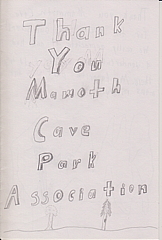 Thank
You
Mamoth
Cave
Park
Association